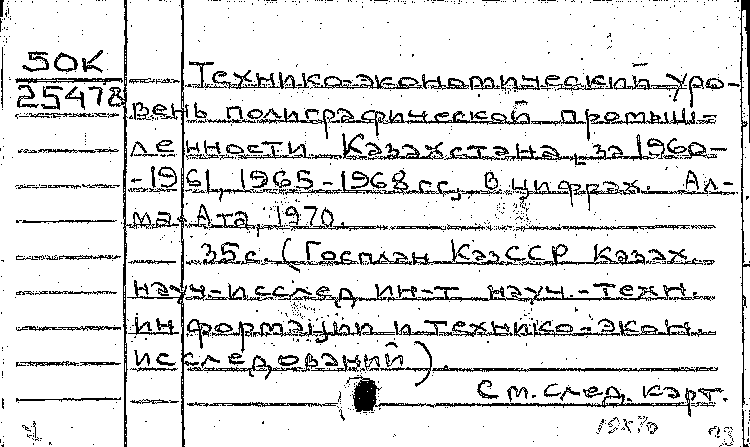 50К
25478
Технико-экономический уро-
вень полиграфической промыш-
ленности Казахстана, за 1960-
-1961, 1965-1968 гг, в цифрах. Ал-
ма-Ата, 1970.
35с. (Госплан КазССР Казах.
науч-исслед ин-т науч.-техн.
информации и технико-экон.
исследований).
См. след. карт.